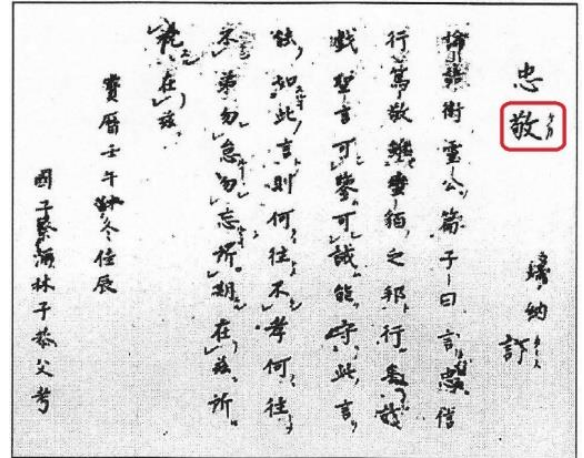 忠敬
納
論語衛霊公篇子曰言忠信
行篤敬雖蠻貊之邦行矣
聖言可鑒可誡能守此言
如此言則何往不孝何往
不弟勿怠勿忘所期在茲所
在茲
寶暦壬午冬佳辰
國子祭酒林子恭父考